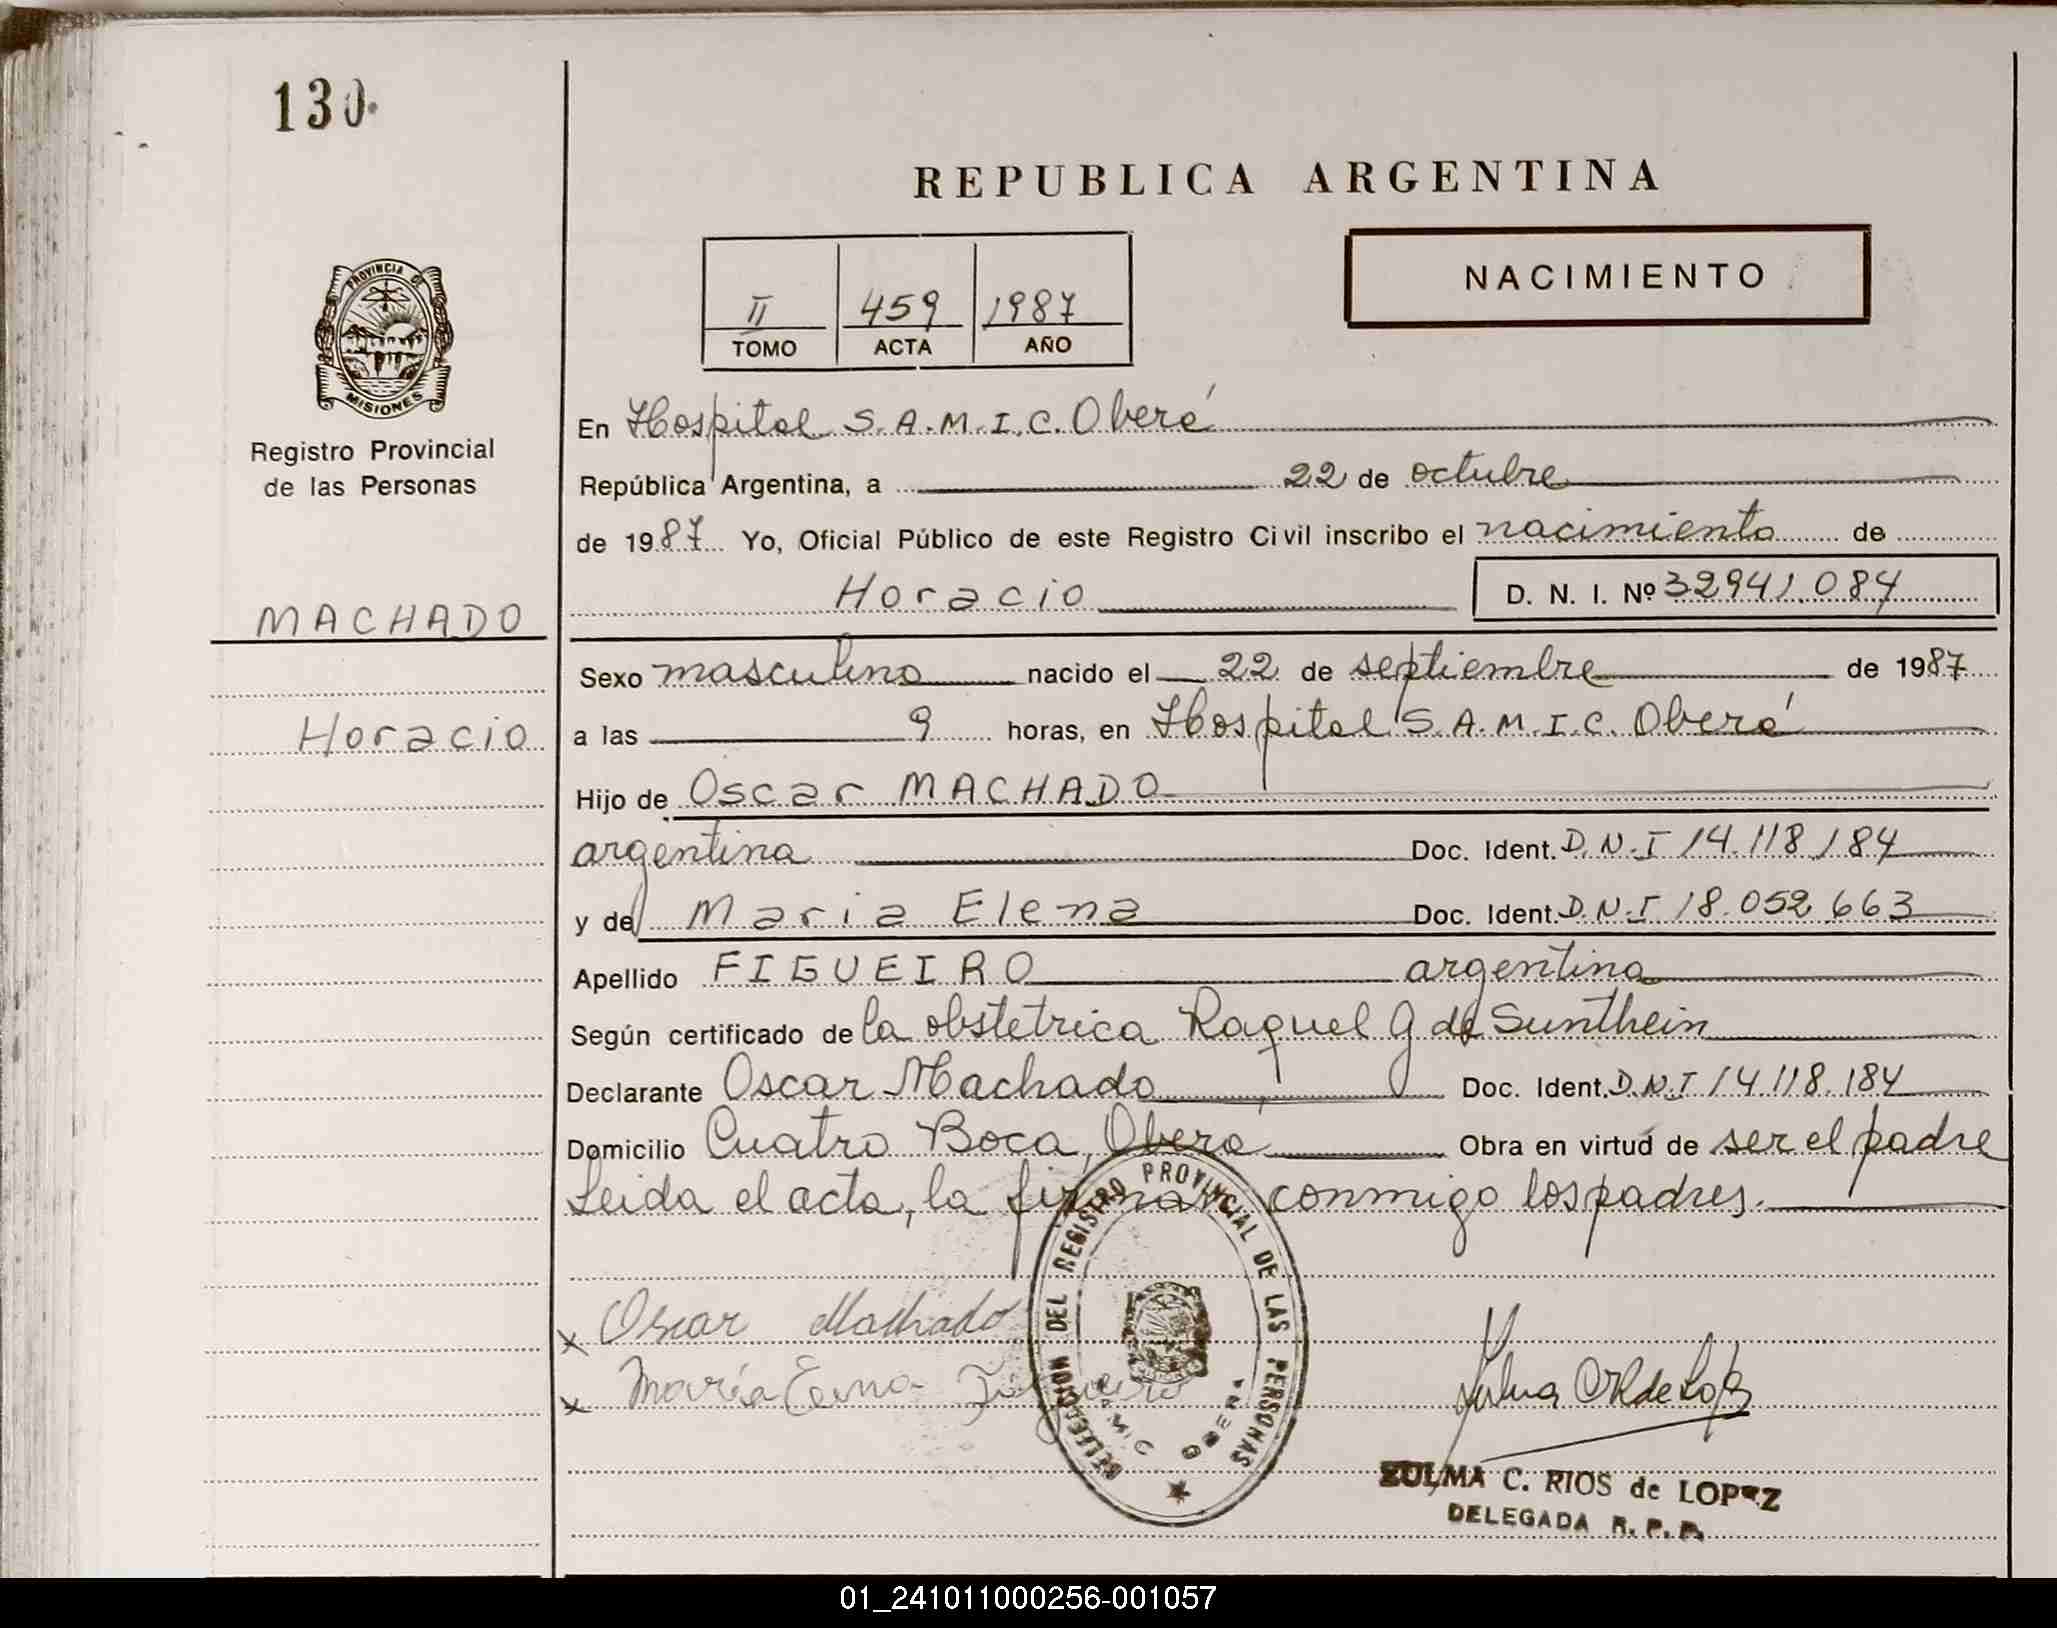 130
REPUBLICA ARGENTINA
NACIMIENTO
II 459 1987
TOMO ACTA AÑO
PROVINCIA DE
MISIONES
Registro Provincial
de las Personas
En Hospital S.A.M.I.C. Oberá
República Argentina, a 22 de octubre
de 1987 Yo, Oficial Público de este Registro Civil inscribo el nacimiento de
Horacio D. N. I. Nº 32941.084
MACHADO
Horacio
Sexo masculino nacido el 22 de septiembre de 1987
a las 9 horas, en Hospital S.A.M.I.C. Oberá
Hijo de Oscar MACHADO
argentina Doc. Ident. D.N.I 14.118.184
y de Maria Elena Doc. Ident. D.N.I 18.052.663
Apellido FIGUEIRO argentina
Según certificado de la obstetrica Raquel G de Sunthein
Declarante Oscar Machado Doc. Ident. D.N.I 14.118.184
Domicilio Cuatro Boca, Oberá Obra en virtud de ser el padre
Leida el acta, la firman conmigo los padres.
DELEGACION DEL REGISTRO PROVINCIAL DE LAS PERSONAS
SAMIC OBERA
x Oscar Machado
x María Figueiro
ZULMA C. RIOS de LOPEZ
DELEGADA R. P. P.
01_241011000256-001057